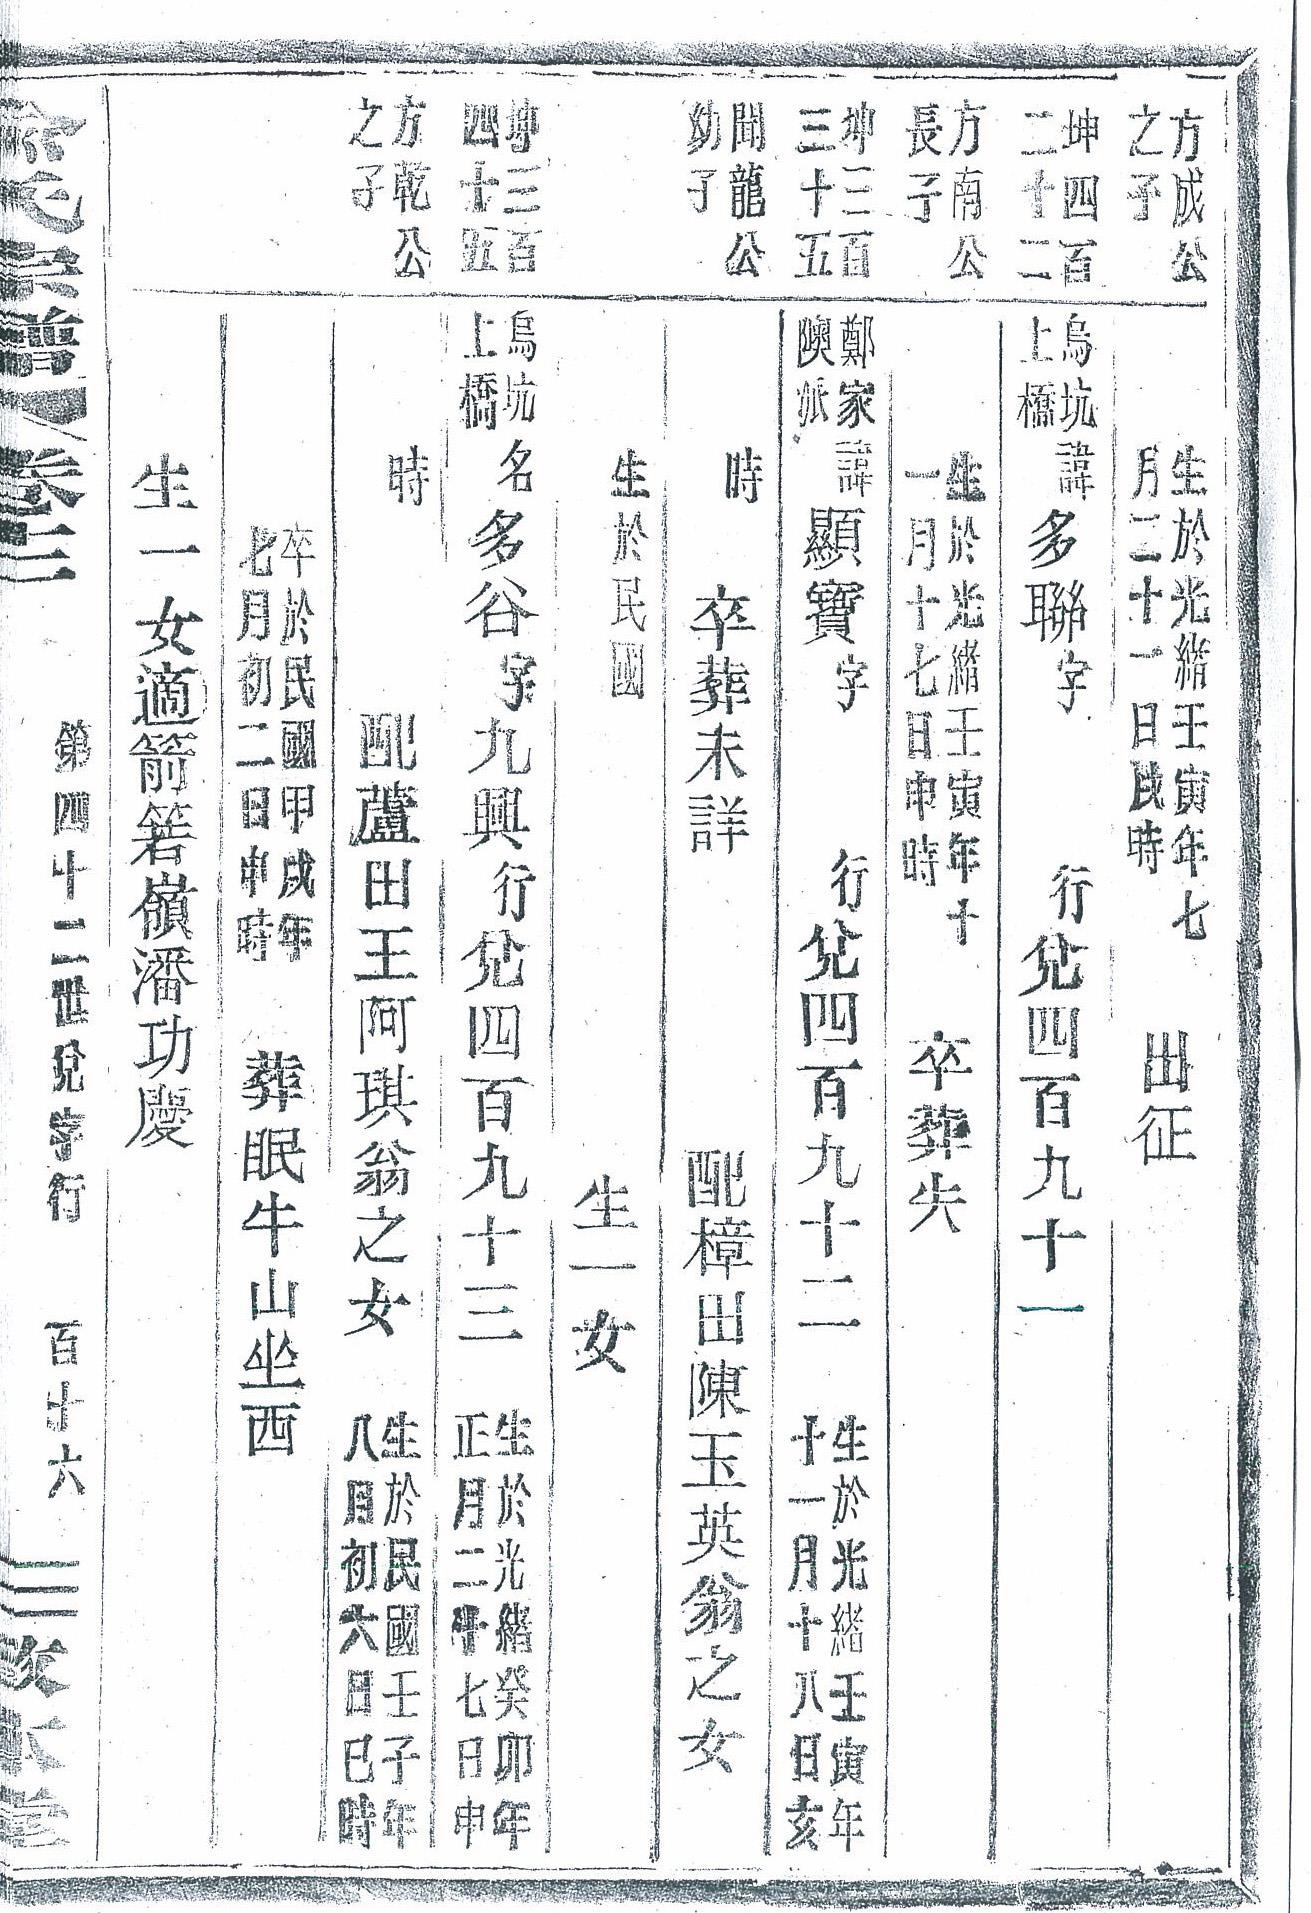 方成公
之子
生於光緒壬寅年七
月二十一日戌時
出征
坤四百
二十二
烏坑
上橋
諱多聯字 行兌四百九十一
方南公
長子
生於光緒壬寅年十
一月十七日申時
卒葬失
坤三百
三十五
鄭家
隩派
諱顯寶字 行兌四百九十二
生於光緒壬寅年
十一月十八日亥
聞龍公
幼子
時 卒葬未詳 配樟田陳玉英翁之女
生於民國 生一女
坤三百
四十五
烏坑
上橋
名多谷字九興行兌四百九十三
生於光緒癸卯年
正月二十七日申
方乾公
之子
時 配蘆田王阿琪翁之女
生於民國壬子年
八月初六日巳時
卒於民國甲戌年
七月初二日申時
葬眠牛山坐西
生一女適箭箬嶺潘功慶
氏宗譜 卷三 第四十二世兌字行 百十六